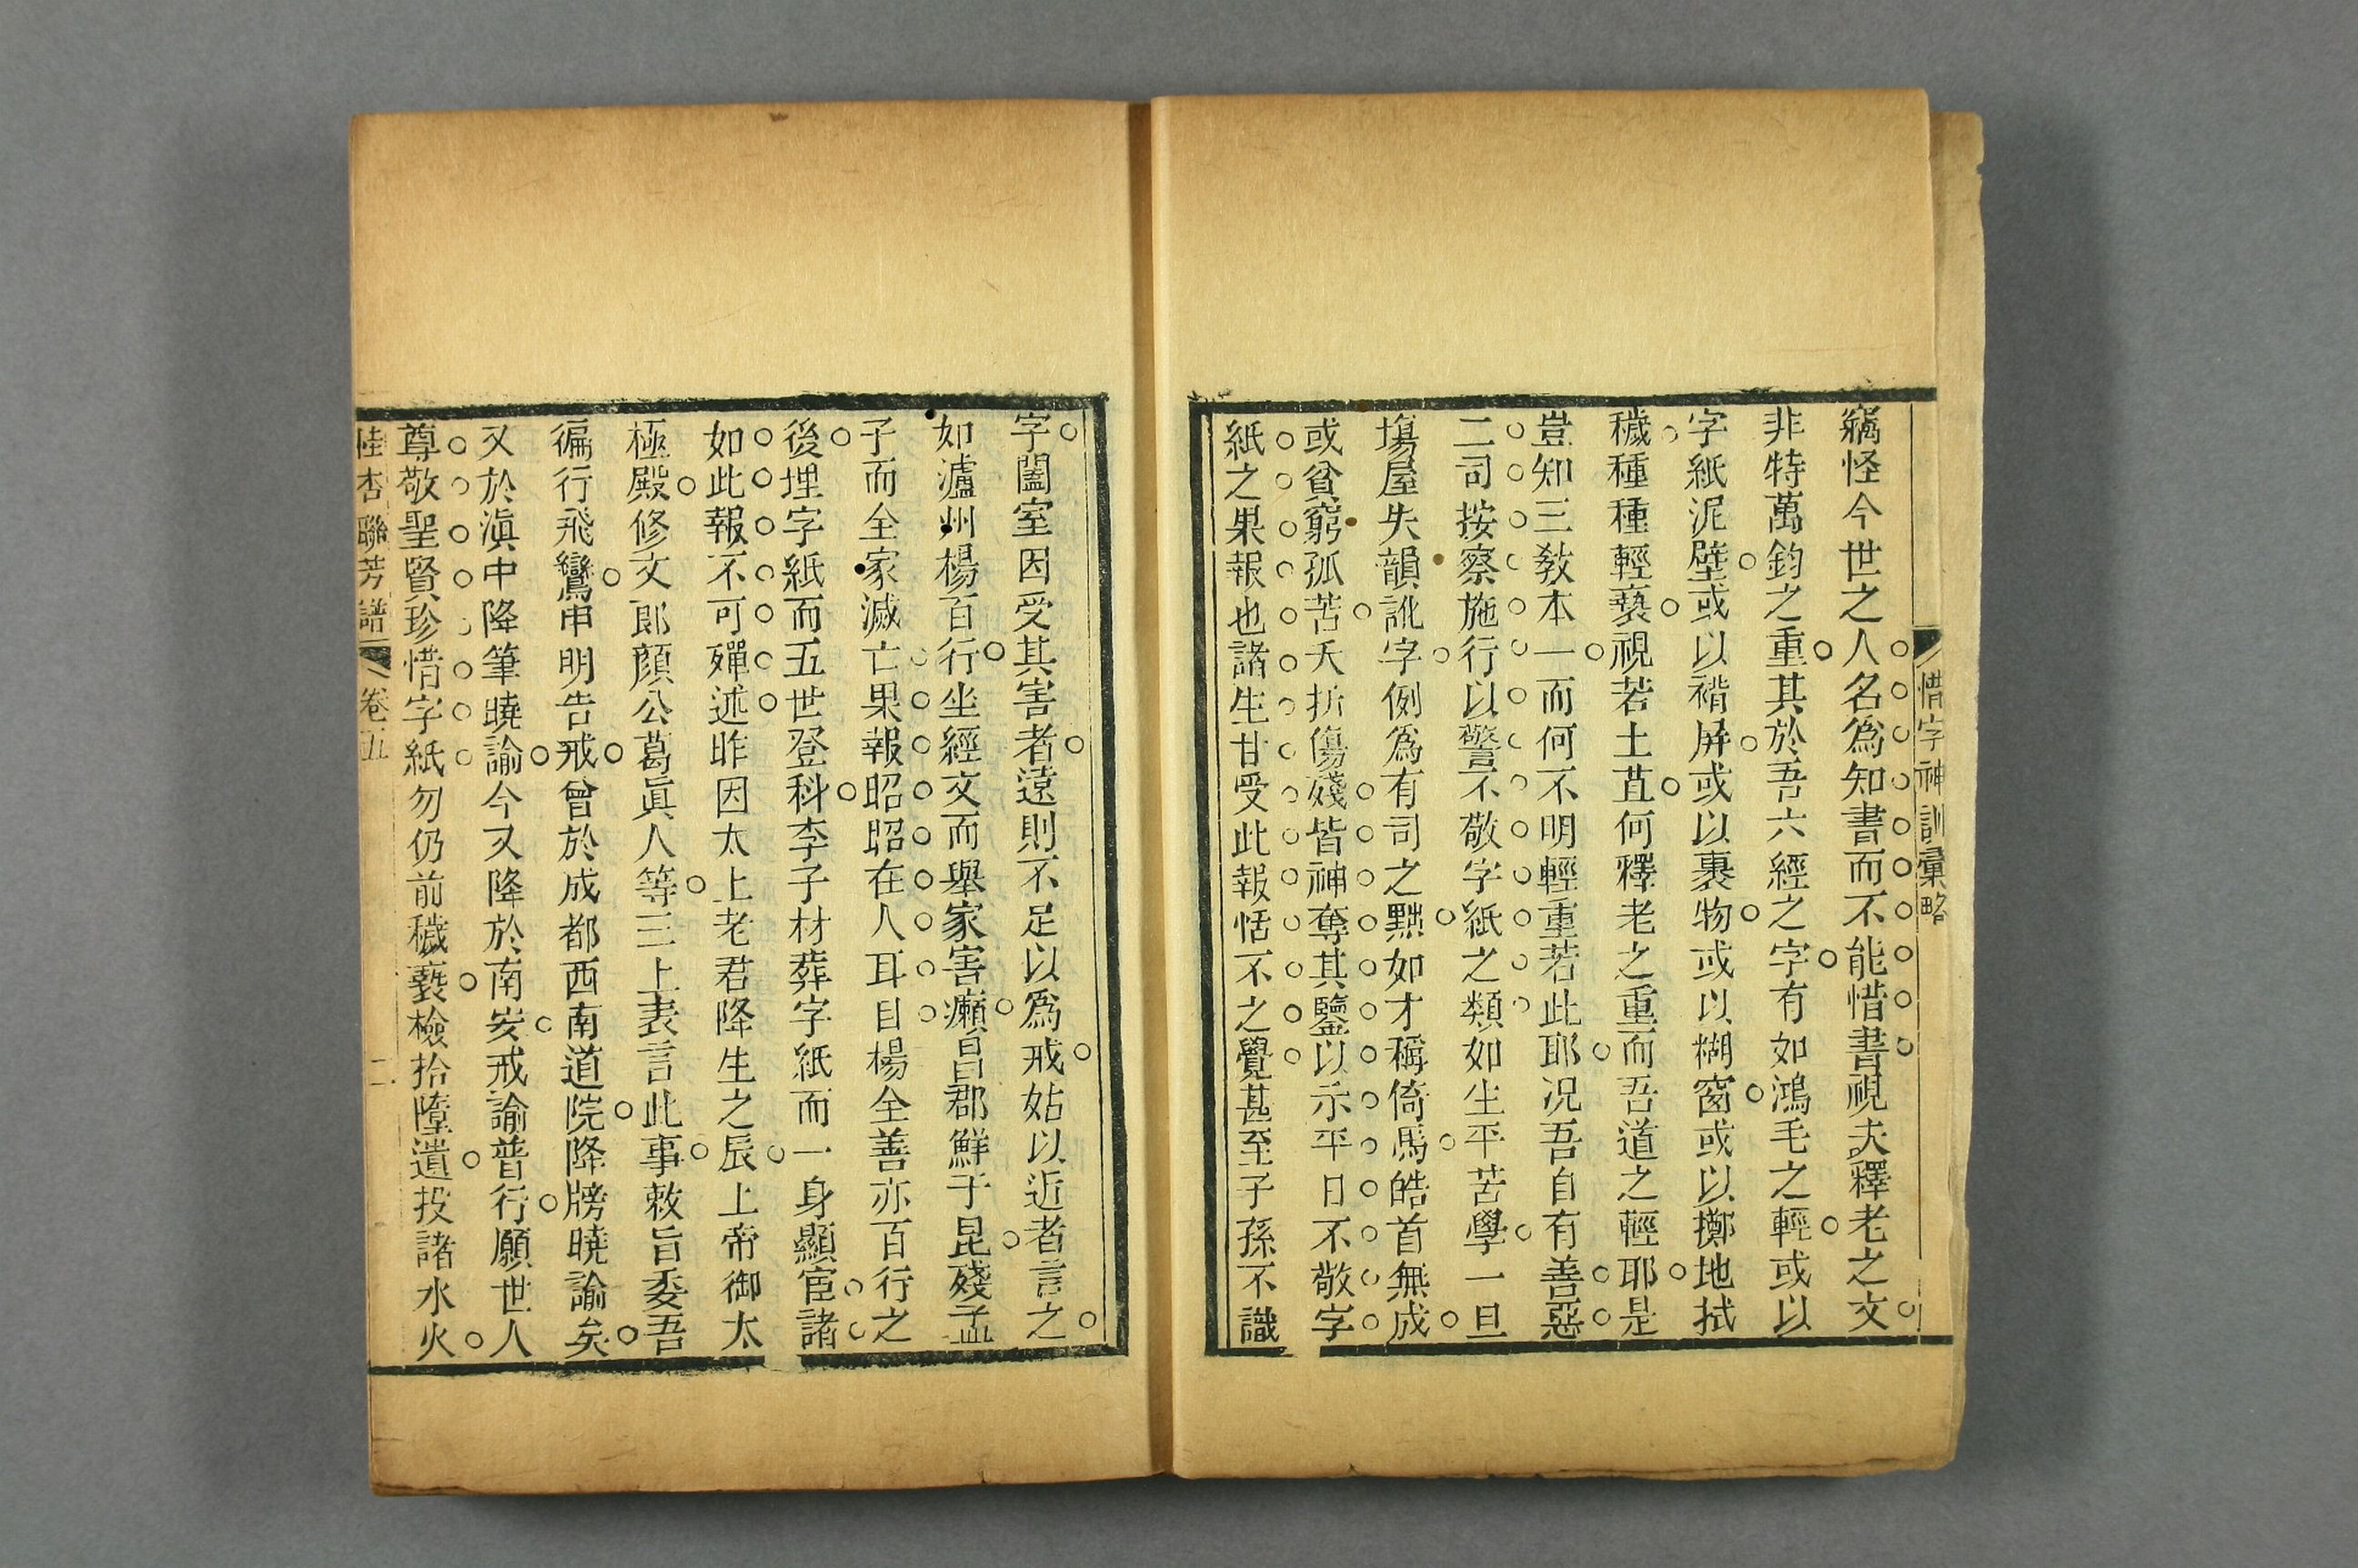 惜字神訓彙略
竊怪今世之人名爲知書而不能惜書視夫釋老之文
非特萬鈞之重其於吾六經之字有如鴻毛之輕或以
字紙泥壁或以褙屏或以裹物或以糊窗或以擲地拭
穢種種輕褻視若土苴何釋老之重而吾道之輕耶是
豈知三教本一而何不明輕重若此耶况吾自有善惡
二司按察施行以警不敬字紙之類如生平苦學一旦
塲屋失韻訛字例爲有司之黜如才稱倚馬皓首無成
或貧窮孤苦夭折傷殘皆神奪其鑒以示平日不敬字
紙之果報也諸生甘受此報恬不之覺甚至子孫不識
字闔室因受其害者遠則不足以爲戒姑以近者言之
如瀘州楊百行坐經文而舉家害癩昌郡鮮于昆殘孟
子而全家滅亡果報昭昭在人耳目楊全善亦百行之
後埋字紙而五世登科李子材葬字紙而一身顯宦諸
如此報不可殫述昨因太上老君降生之辰上帝御太
極殿修文郎顏公葛眞人等三上表言此事敕旨委吾
徧行飛鸞申明告戒曾於成都西南道院降牓曉諭矣
又於滇中降筆曉諭今又降於南安戒諭普行願世人
尊敬聖賢珍惜字紙勿仍前穢褻檢拾墮遺投諸水火
桂杏聯芳譜 卷五 二